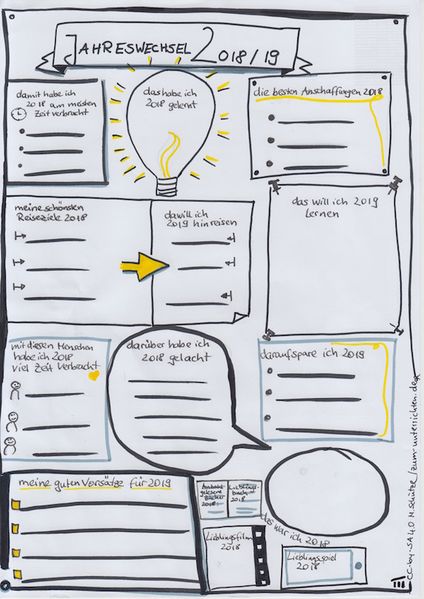 JAHRESWECHSEL 2018/19
damit habe ich
2018 am meisten
Zeit verbracht
das habe ich
2018 gelernt
die besten Anschaffungen 2018
meine schönsten
Reiseziele 2018
da will ich
2019 hinreisen
das will ich 2019
lernen
mit diesen Menschen
habe ich 2018
viel Zeit verbracht
darüber habe ich
2018 gelacht
darauf spare ich 2019
meine guten Vorsätze für 2019
Anzahl
gelesene
Bücher
2018:
Lieblings-
buch
2018
das war ich 2018
Lieblingsfilm
2018
Lieblingsspiel
2018
CC-by-SA 4.0 M.Schütze/zum-unterrichten.de